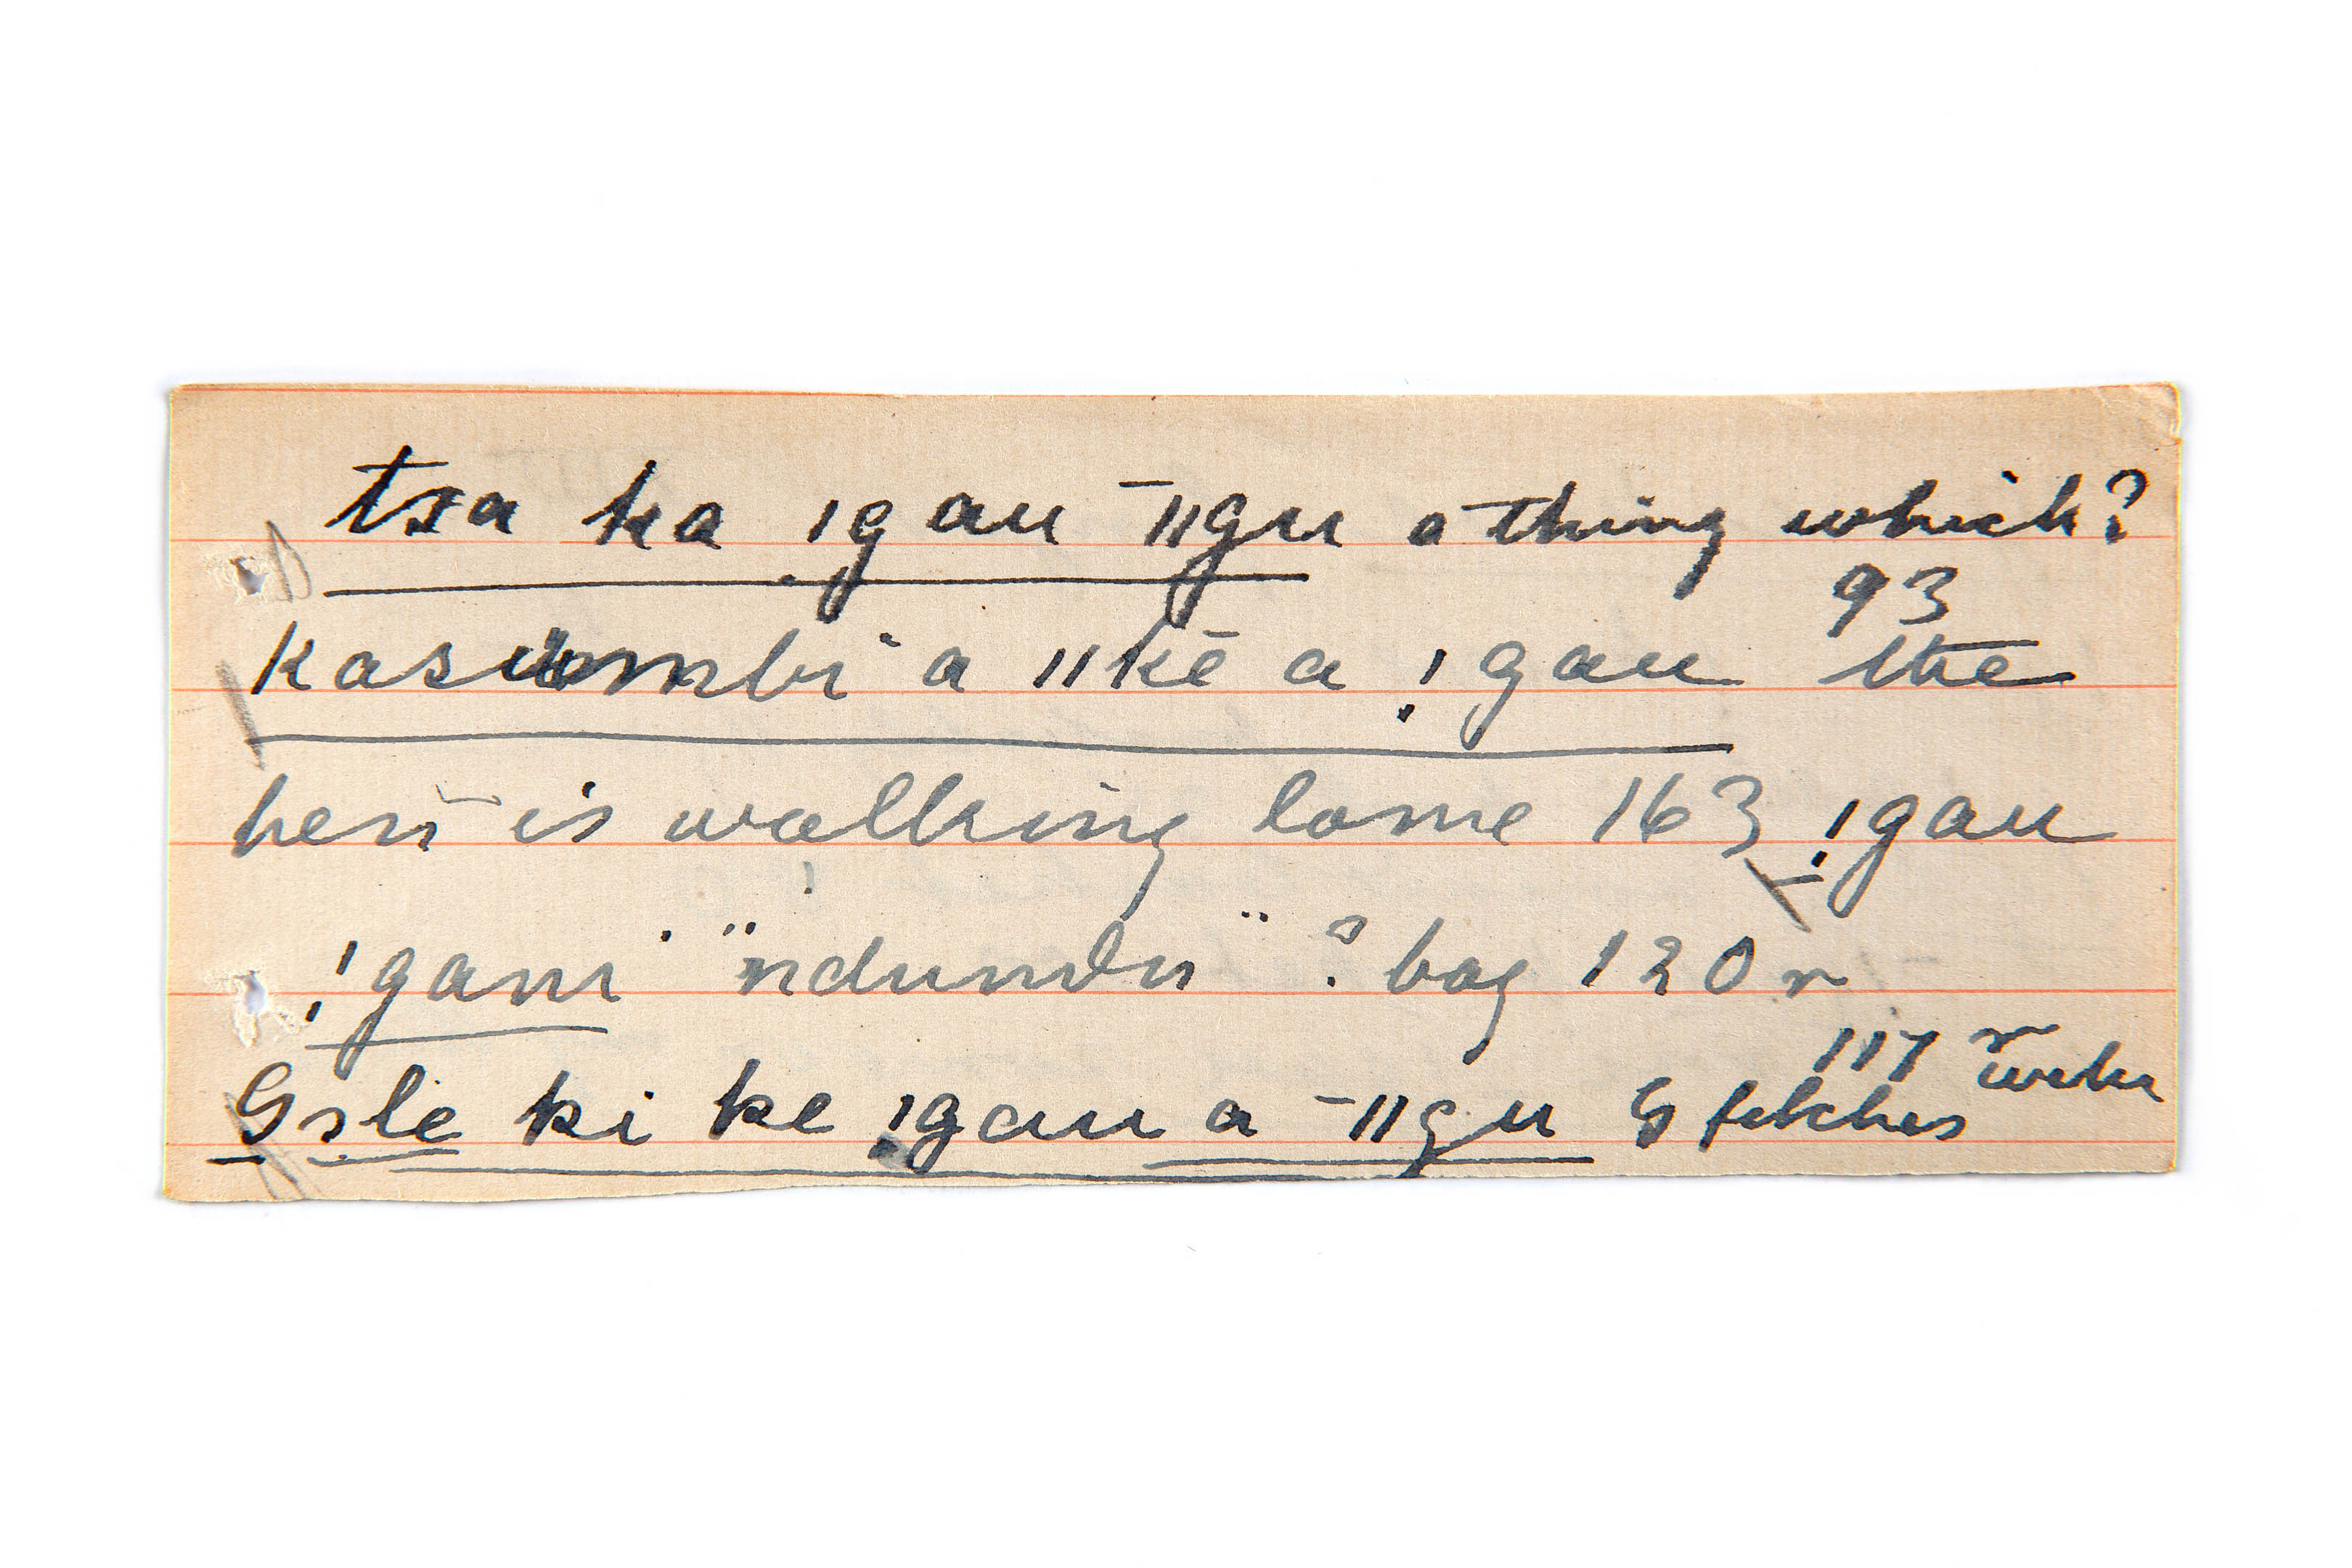 tsa ka !gau -ǁgu a thing which?
93
kasumbi a ǁkē a !gau the
hen is walking lame 163 !gau
!gani "ndundu" ? bag 120 r
117 r
Gsle ki ke !gau a -ǁgu G fetches water